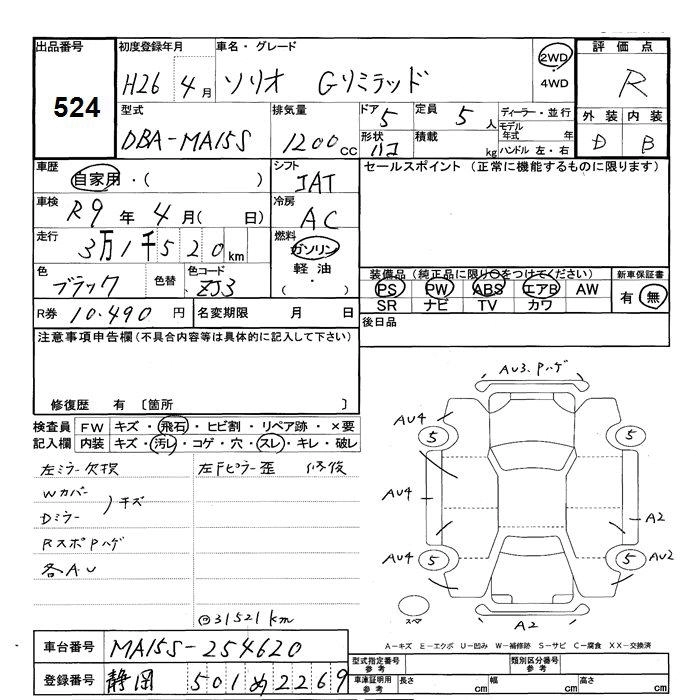 出品番号
524
初度登録年月
H26 4月
車名・グレード
ソリオ Gリミテッド
2WD
・
4WD
評価点
R
外装 内装
D B
型式
DBA-MA15S
排気量
1200cc
ドア 5
形状 ハコ
定員 5人
積載 kg
ディーラー・並行
モデル年式 年
ハンドル 左・右
車歴
自家用・( )
シフト
IAT
車検
R9年 4月( 日)
冷房
AC
走行
3万1千520km
燃料
ガソリン
軽油
( ・ )
色
ブラック
色替
色コード
ZJ3
R券 10.490円
名変期限 月 日
セールスポイント (正常に機能するものに限ります)
装備品(純正品に限り○をつけてください)
PS PW ABS エアB AW
SR ナビ TV カワ
新車保証書
有・無
後日品
注意事項申告欄(不具合内容等は具体的に記入して下さい)
修復歴 有 〔箇所 〕
検査員 FW キズ・飛石・ヒビ割・リペア跡・×要
記入欄 内装 キズ・汚レ・コゲ・穴・スレ・キレ・破レ
左ミラー欠損 左Fピラー歪 修復
Wカバー
Dミラー
キズ
RスポPハゲ
各AU
31521km
AU3.Pハゲ
AU4 5 5
AU4
A2
AU4 5 5 AU2
スマ
A2
A-キズ E-エクボ U-凹み W-補修跡 S-サビ C-腐食 XX-交換済
車台番号 MA15S-254620
登録番号 静岡 501 め 2269
型式指定番号 参考
類別区分番号 参考
車庫証明用 参考
長さ cm
幅 cm
高さ cm